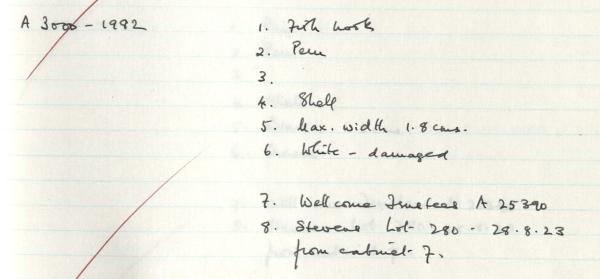 A 3000 - 1992
1. Fish hooks
2. Peru
3.
4. Shell
5. Max. width 1.8 cms.
6. White - damaged
7. Wellcome Trustees A 25390
8. Stevens Lot 280 - 28.8.23
from cabinet 7.